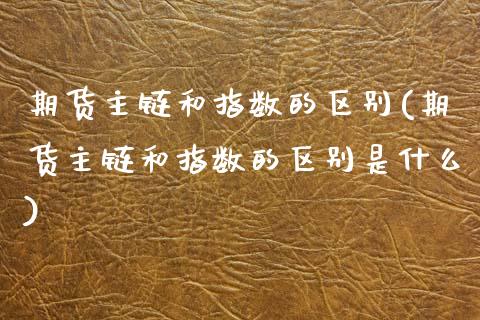 期货主链和指数的区别(期
货主链和指数的区别是什么
)